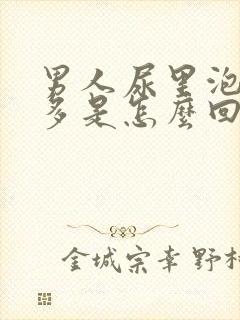 男人尿里泡
多是怎麼回
金城宗幸 野村